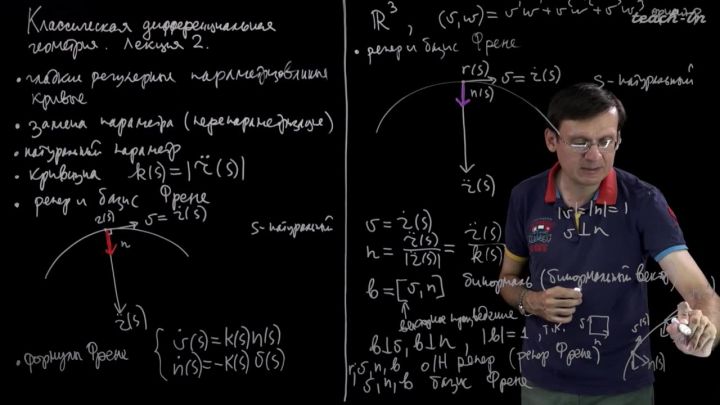 Классическая дифференциальная
геометрия. Лекция 2.
• гладкие регулярные параметризованные
кривые
• замена параметра (перепараметризация)
• натуральный параметр
• кривизна k(s)=|r̈(s)|
• репер и базис Френе
r(s) v=ṙ(s)
s - натуральный
n
r̈(s)
• формулы Френе { v̇(s)=k(s)n(s)
ṅ(s)=-k(s)v(s)
ℝ³, (v,w)=v¹w¹+v²w²+v³w³
teach-in
• репер и базис Френе
r(s) v=ṙ(s)
s - натуральный
n(s)
r̈(s)
v=ṙ(s)
n=r̈(s)/|r̈(s)|=r̈(s)/k(s)
|v|=|n|=1
v⊥n
b=[v,n] бинормаль (бинормальный вект
векторное произведение
b⊥v, b⊥n, |b|=1, т.к. v n
r,v,n,b о/н репер (репер Френе)
v,n,b базис Френе
v(s)
n(s)